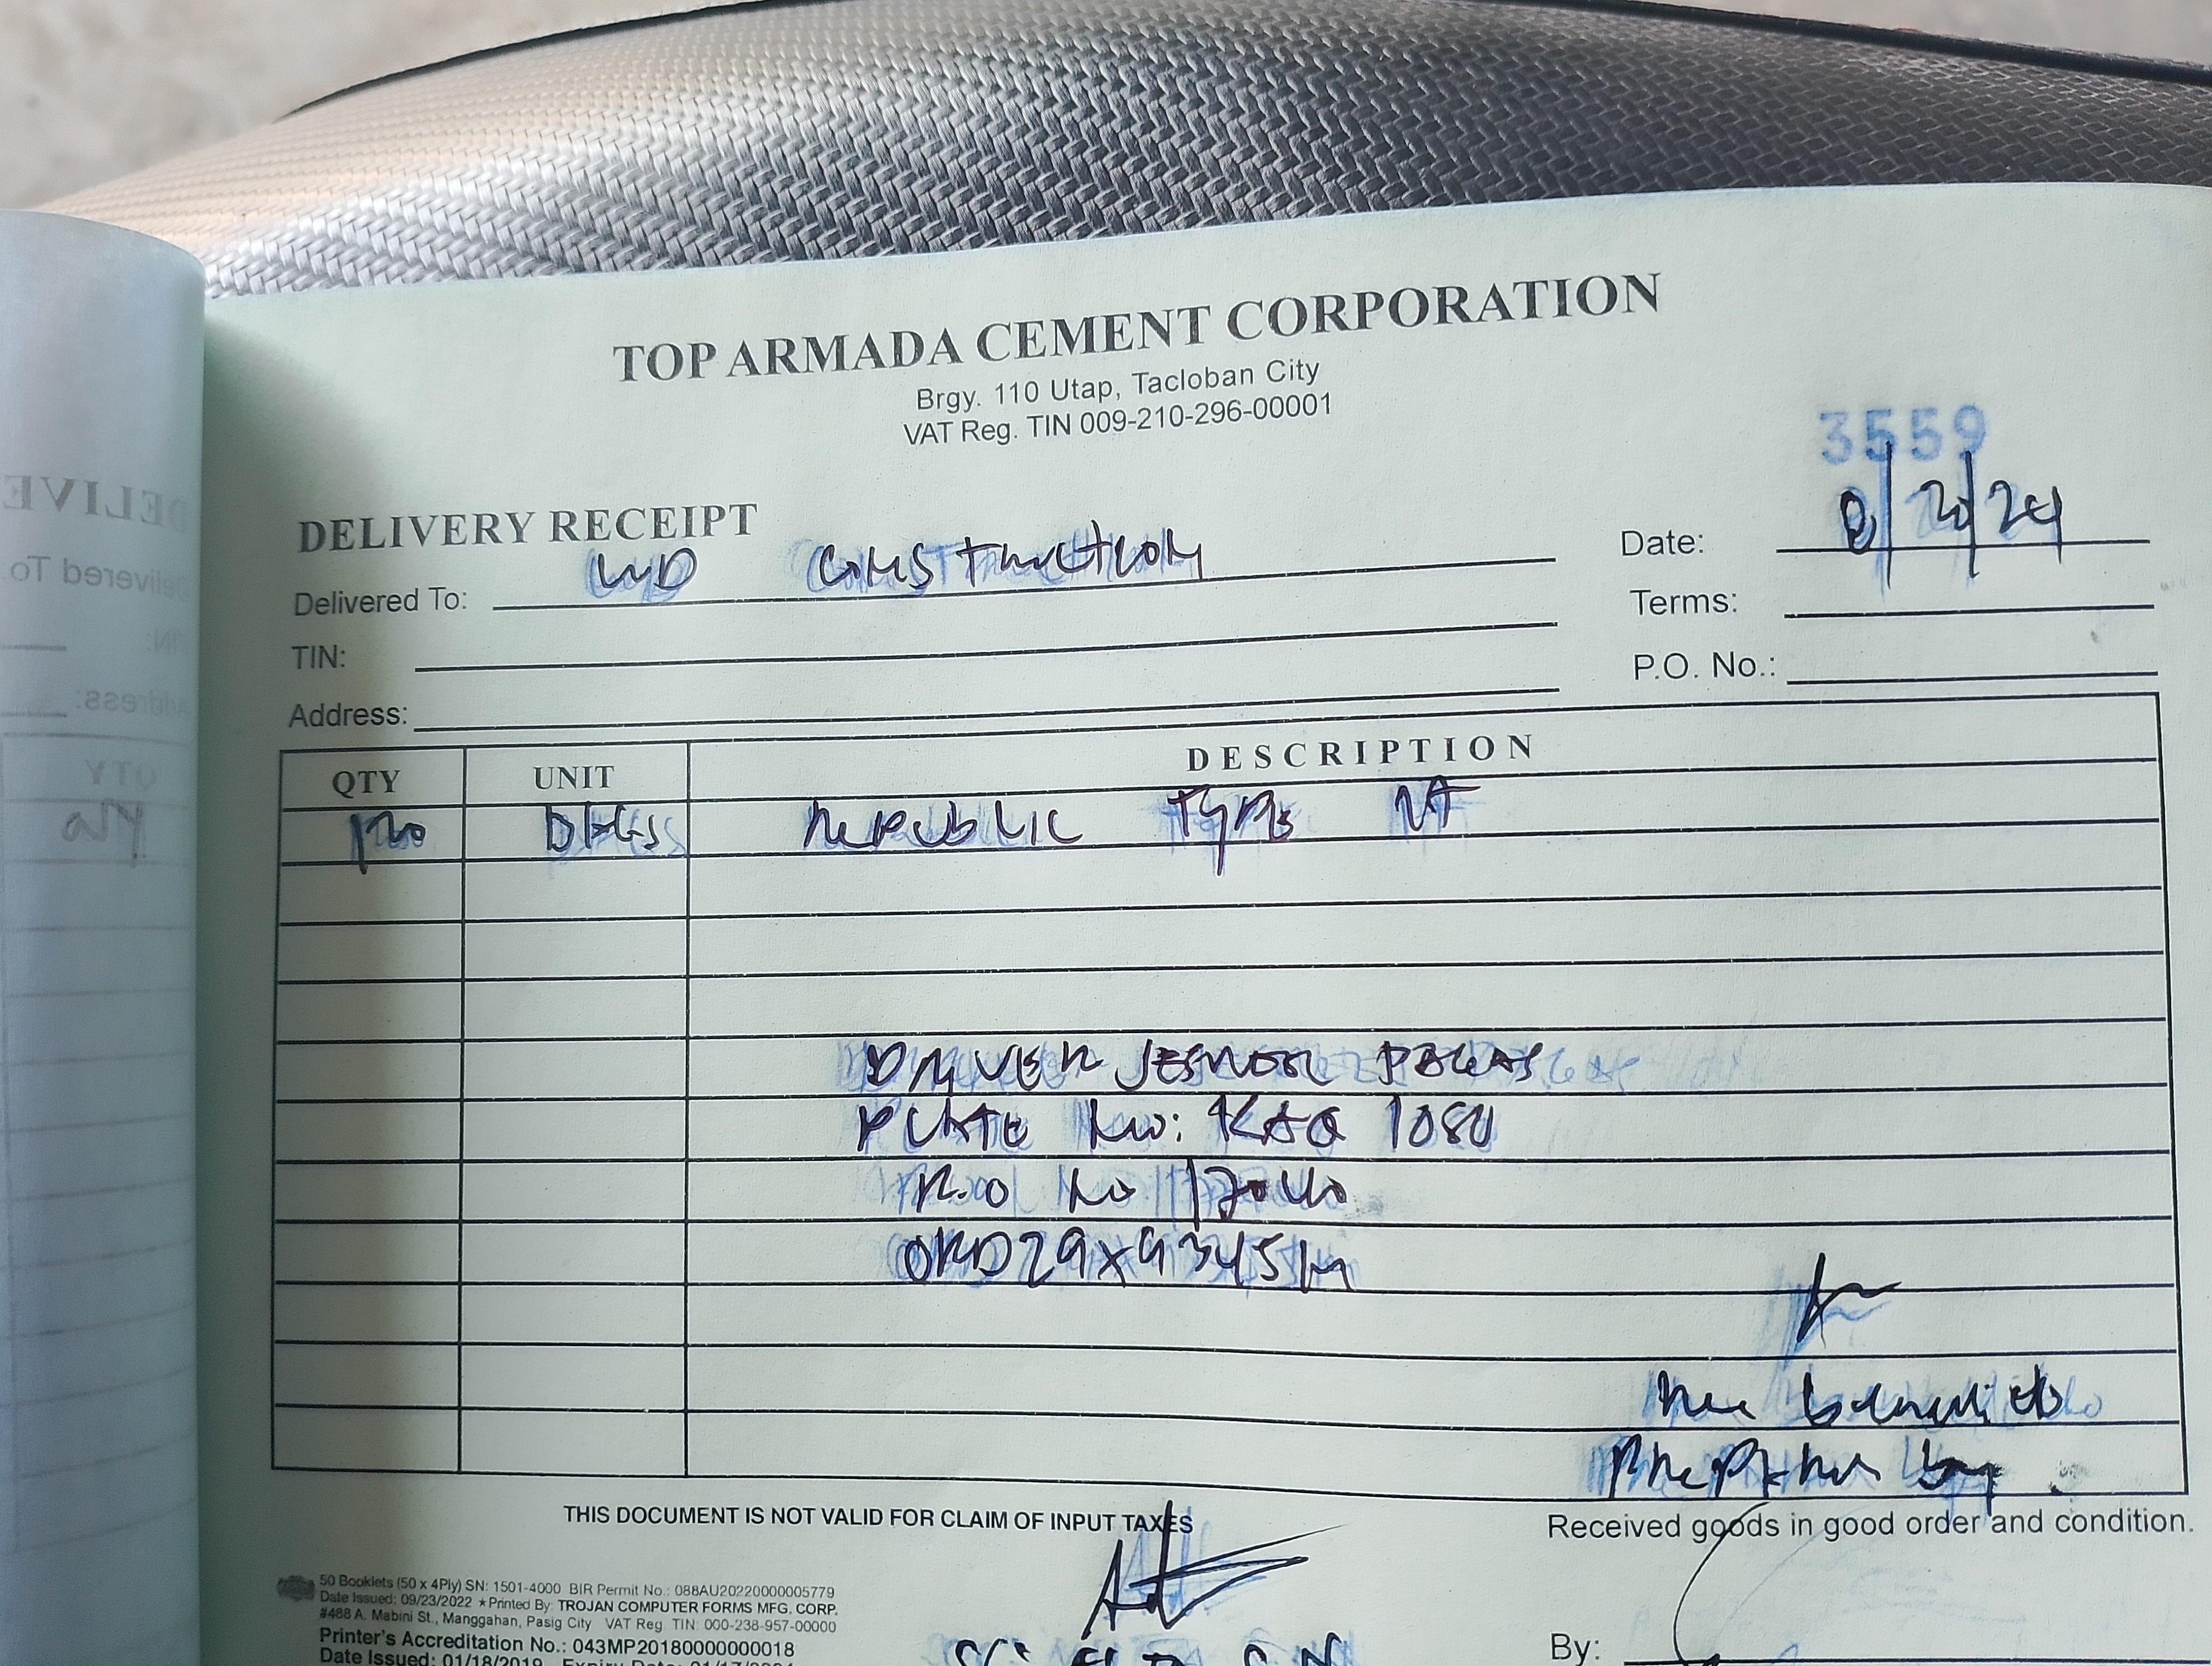 TOP ARMADA CEMENT CORPORATION
Brgy. 110 Utap, Tacloban City
VAT Reg. TIN 009-210-296-00001
3559
DELIVERY RECEIPT
Date: 8/20/24
Delivered To: WD CONSTRUCTION
Terms:
TIN:
P.O. No.:
Address:
QTY UNIT DESCRIPTION
BAGS REPUBLIC TYPE
DRIVER
PLATE No: KAQ 1080
THIS DOCUMENT IS NOT VALID FOR CLAIM OF INPUT TAXES
Received goods in good order and condition.
50 Booklets (50 x 4Ply) SN: 1501-4000 BIR Permit No.: 088AU20220000005779
Date Issued: 09/23/2022 ★Printed By: TROJAN COMPUTER FORMS MFG. CORP.
#488 A. Mabini St., Manggahan, Pasig City VAT Reg. TIN: 000-238-957-00000
Printer's Accreditation No.: 043MP20180000000018
Date Issued: 01/18/2019
By: